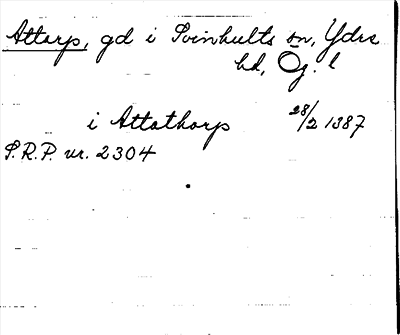 Attarp, gd i Svinhults sn, Ydre
hd, Ög. l
i Attathorp 28/2 1387
S.R.P. nr. 2304